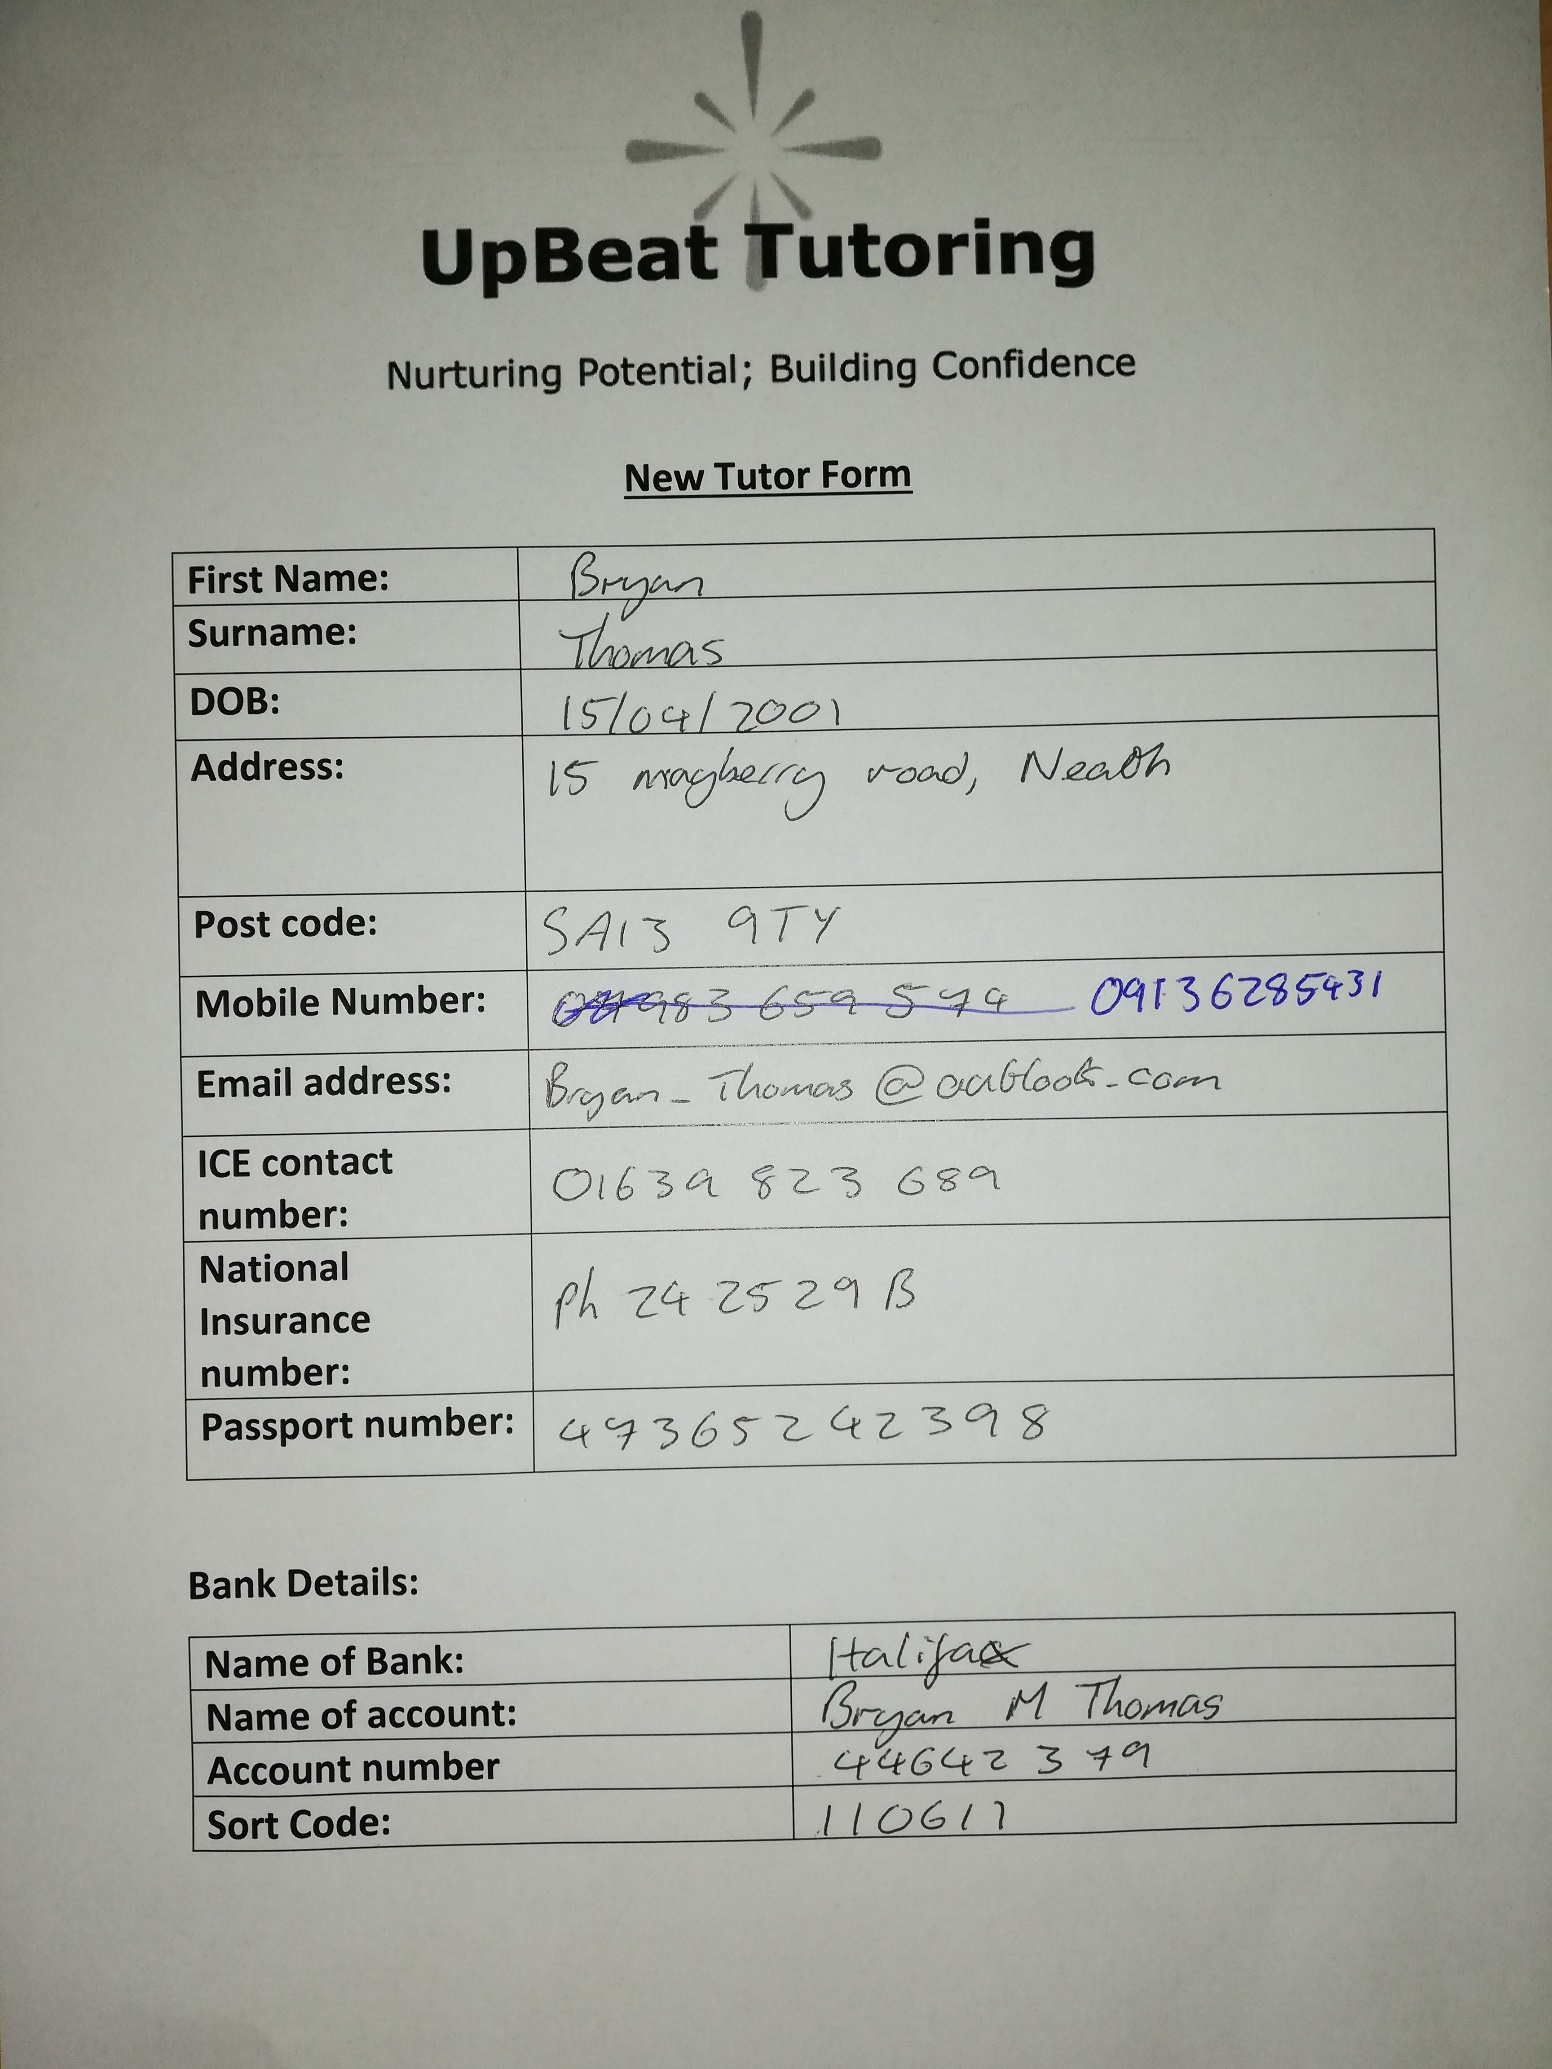 UpBeat Tutoring
Nurturing Potential; Building Confidence
New Tutor Form
First Name: Bryan
Surname: Thomas
DOB: 15/04/2001
Address: 15 mayberry road, Neath
Post code: SA13 9TY
Mobile Number: 983 659 574 09136285431
Email address: Bryan_Thomas@outlook.com
ICE contact number: 01639 823 689
National Insurance number: Ph 24 25 29 B
Passport number: 47365242398
Bank Details:
Name of Bank: Halifax
Name of account: Bryan M Thomas
Account number 44642379
Sort Code: 110611